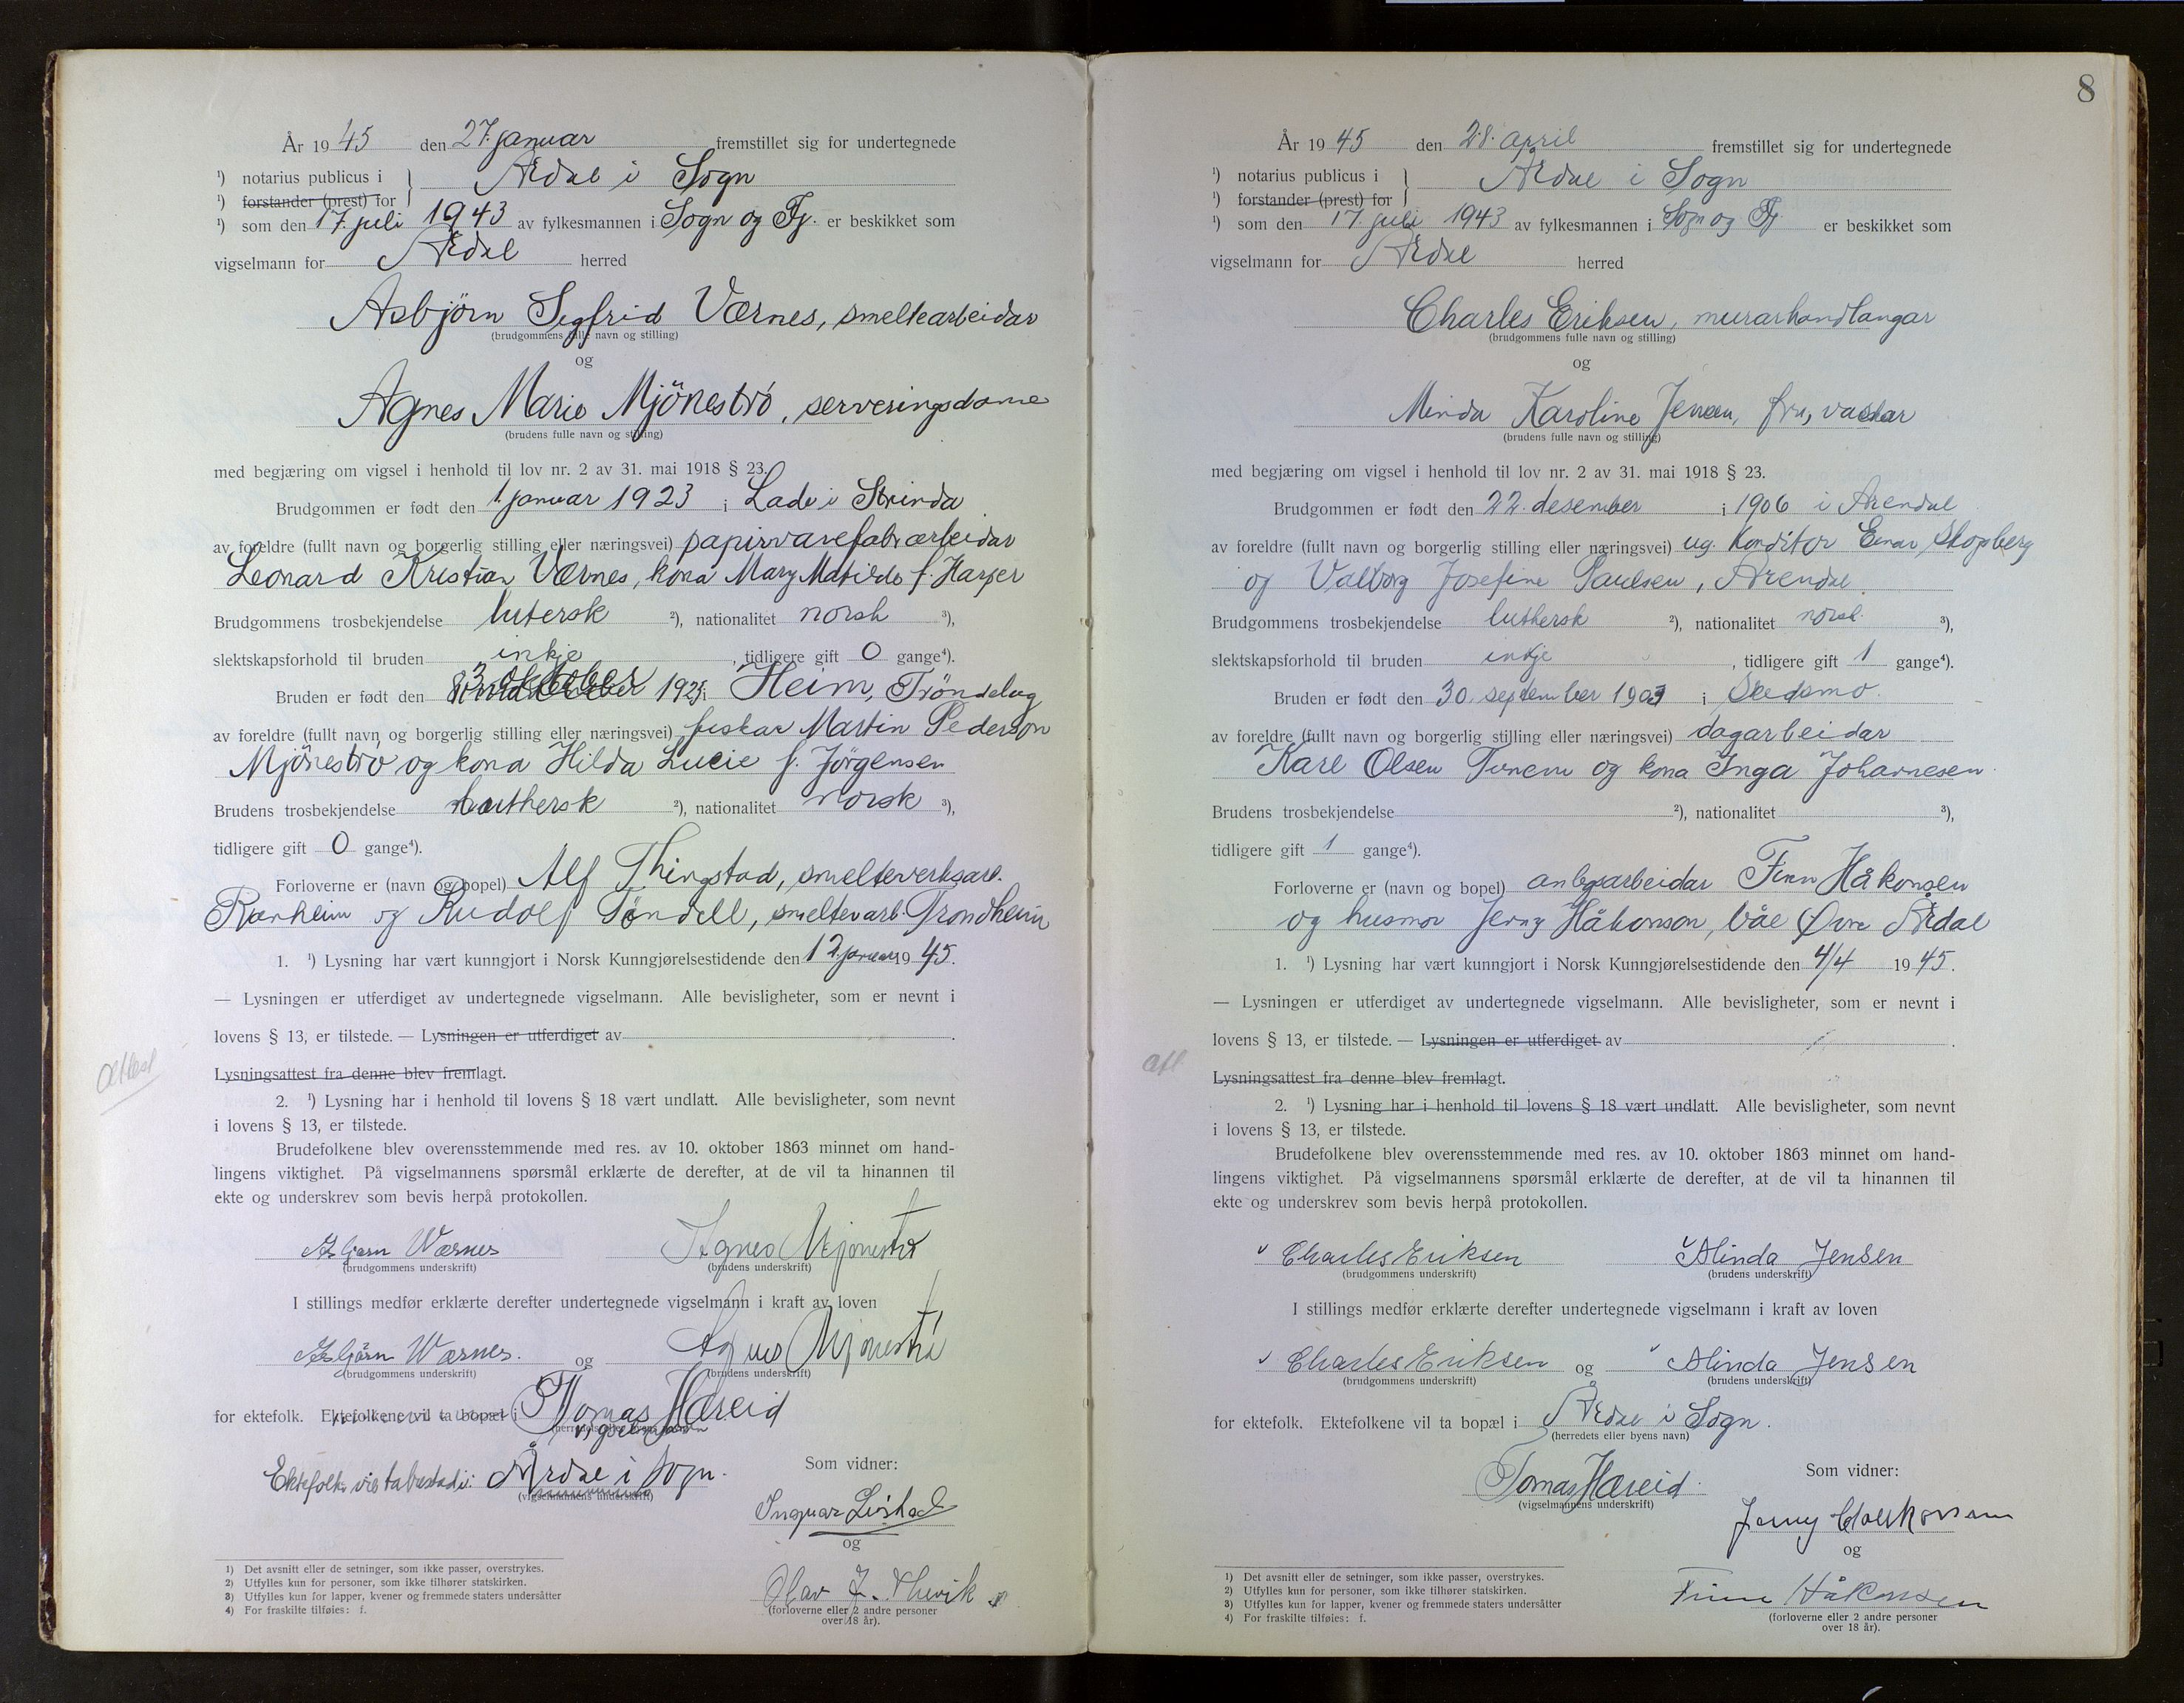 År 1945 den 27. januar fremstillet sig for undertegnede
¹) notarius publicus i } Årdal i Sogn
¹) forstander (prest) for
¹) som den 17. juli 1943 av fylkesmannen i Sogn og Fj. er beskikket som
vigselmann for Årdal herred
Asbjörn Segfrid Værnes, smeltearbeidar
(brudgommens fulle navn og stilling)
og
Agnes Marie Mjöneströ, serveringsdame
(brudens fulle navn og stilling)
med begjæring om vigsel i henhold til lov nr. 2 av 31. mai 1918 § 23.
Brudgommen er født den 1. januar 1923 i Lade i Strinda
av foreldre (fullt navn og borgerlig stilling eller næringsvei) papirvarefabrarbeidar
Leonard Kristian Værnes, kona Mary Matilde f. Harper
Brudgommens trosbekjendelse lutersk ²), nationalitet norsk ³),
slektskapsforhold til bruden inkje, tidligere gift 0 gange⁴).
Bruden er født den 3 oktober 1925 i Heim, Tröndelag
av foreldre (fullt navn og borgerlig stilling eller næringsvei) fiskar Martin Pederson
Mjöneströ og kona Hilda Lucie f. Jörgensen
Brudens trosbekjendelse luthersk ²), nationalitet norsk ³),
tidligere gift 0 gange⁴).
Forloverne er (navn og bopel) Alf Thingstad, smelteverksarb.
Ranheim og Rudolf Töndell, smeltevarb. Trondheim
1. ¹) Lysning har vært kunngjort i Norsk Kunngjørelsestidende den 12. januar 1945.
— Lysningen er utferdiget av undertegnede vigselmann. Alle bevisligheter, som er nevnt i
lovens § 13, er tilstede. — Lysningen er utferdiget av
attest
Lysningsattest fra denne blev fremlagt.
2. ¹) Lysning har i henhold til lovens § 18 vært undlatt. Alle bevisligheter, som nevnt
i lovens § 13, er tilstede.
Brudefolkene blev overensstemmende med res. av 10. oktober 1863 minnet om hand-
lingens viktighet. På vigselmannens spørsmål erklærte de derefter, at de vil ta hinannen til
ekte og underskrev som bevis herpå protokollen.
Asbjørn Wærnes Agnes Mjønestrø
(brudgommens underskrift) (brudens underskrift)
I stillings medfør erklærte derefter undertegnede vigselmann i kraft av loven
Asbjörn Wærnes. og Agnes Mjønestrø
(brudgommens underskrift) (brudens underskrift)
for ektefolk. Ektefolkene vil ta bopæl i Thomas Hæreid
(herredets eller byens navn)
vigselmann
Ektefolk vil ta bustad i: Årdal i Sogn.
(vigselmannens underskrift)
Som vidner:
Ingvar
og
Olav J.
(forloverne eller 2 andre personer
over 18 år).
1) Det avsnitt eller de setninger, som ikke passer, overstrykes.
2) Utfylles kun for personer, som ikke tilhører statskirken.
3) Utfylles kun for lapper, kvener og fremmede staters undersåtter
4) For fraskilte tilføies: f.
8
År 1945 den 28. april fremstillet sig for undertegnede
¹) notarius publicus i } Årdal i Sogn
¹) forstander (prest) for
¹) som den 17. juli 1943 av fylkesmannen i Sogn og Fj er beskikket som
vigselmann for Årdal herred
Charles Eriksen, murarhandlangar
(brudgommens fulle navn og stilling)
og
Minda Karoline Jensen, fru, vaskar
(brudens fulle navn og stilling)
med begjæring om vigsel i henhold til lov nr. 2 av 31. mai 1918 § 23.
Brudgommen er født den 22. desember i 1906 i Arendal
av foreldre (fullt navn og borgerlig stilling eller næringsvei) ug. Konditor Einar Skopberg
og Valborg Josefine Paulsen, Arendal
Brudgommens trosbekjendelse luthersk ²), nationalitet norsk ³),
slektskapsforhold til bruden inkje, tidligere gift 1 gange⁴).
Bruden er født den 30. september 1903 i Skedsmo.
av foreldre (fullt navn og borgerlig stilling eller næringsvei) dagarbeidar
Karl Olsen Tunem og kona Inga Johannesen
Brudens trosbekjendelse ²), nationalitet ³),
tidligere gift 1 gange⁴).
Forloverne er (navn og bopel) anlegsarbeidar Finn Håkonsen
og husmor Jenny Håkonson, båe Øvre Årdal
1. ¹) Lysning har vært kunngjort i Norsk Kunngjørelsestidende den 4/4 1945.
— Lysningen er utferdiget av undertegnede vigselmann. Alle bevisligheter, som er nevnt i
lovens § 13, er tilstede. — Lysningen er utferdiget av
att.
Lysningsattest fra denne blev fremlagt.
2. ¹) Lysning har i henhold til lovens § 18 vært undlatt. Alle bevisligheter, som nevnt
i lovens § 13, er tilstede.
Brudefolkene blev overensstemmende med res. av 10. oktober 1863 minnet om hand-
lingens viktighet. På vigselmannens spørsmål erklærte de derefter, at de vil ta hinannen til
ekte og underskrev som bevis herpå protokollen.
Charles Eriksen Minda Jensen
(brudgommens underskrift) (brudens underskrift)
I stillings medfør erklærte derefter undertegnede vigselmann i kraft av loven
Charles Eriksen og Minda Jensen
(brudgommens underskrift) (brudens underskrift)
for ektefolk. Ektefolkene vil ta bopæl i Årdal i Sogn.
(herredets eller byens navn)
Tomas Hæreid.
(vigselmannens underskrift)
Som vidner:
Jenny Håkonsen
og
Finn Håkonsen
(forloverne eller 2 andre personer
over 18 år).
1) Det avsnitt eller de setninger, som ikke passer, overstrykes.
2) Utfylles kun for personer, som ikke tilhører statskirken.
3) Utfylles kun for lapper, kvener og fremmede staters undersåtter
4) For fraskilte tilføies: f.